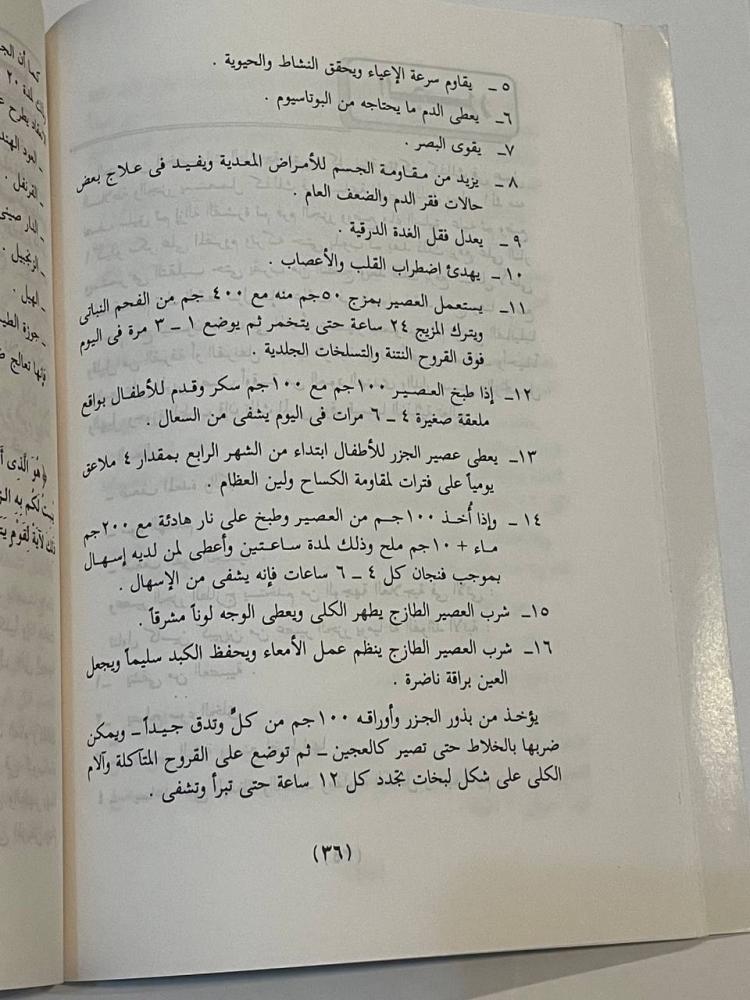 ٥ ـ يقاوم سرعة الإعياء ويحقق النشاط والحيوية .
٦ـ يعطى الدم ما يحتاجه من البوتاسيوم .
٧ـ يقوى البصر .
٨ ـ يزيد من مقاومة الجسم للأمراض المعدية ويفيد فى علاج بعض
حالات فقر الدم والضعف العام .
٩ ـ يعدل فقل الغدة الدرقية .
١٠ ـ يهدئ اضطراب القلب والأعصاب .
١١ـ يستعمل العصير بمزج ٥٠جم منه مع ٤٠٠ جم من الفحم النباتى
ويترك المزيج ٢٤ ساعة حتى يتخمر ثم يوضع ١ ـ ٣ مرة فى اليوم
فوق القروح النتنة والتسلخات الجلدية .
١٢ـ إذا طبخ العصير ١٠٠جم مع ١٠٠جم سكر وقدم للأطفال بواقع
ملعقة صغيرة ٤ ـ ٦ مرات فى اليوم يشفى من السعال .
١٣ـ يعطى عصير الجزر للأطفال ابتداء من الشهر الرابع بمقدار ٤ ملاعق
يومياً على فترات لمقاومة الكساح ولين العظام .
١٤ ـ وإذا أُخذ ١٠٠جم من العصير وطبخ على نار هادئة مع ٢٠٠جم
ماء + ١٠جم ملح وذلك لمدة ساعتين وأعطى لمن لديه إسهال
بموجب فنجان كل ٤ ـ ٦ ساعات فإنه يشفى من الإسهال .
١٥ـ شرب العصير الطازج يطهر الكلى ويعطى الوجه لوناً مشرقاً .
١٦ـ شرب العصير الطازج ينظم عمل الأمعاء ويحفظ الكبد سليماً ويجعل
العين براقة ناضرة .
يؤخذ من بذور الجزر وأوراقه ١٠٠جم من كلٍّ وتدق جيداً ـ ويمكن
ضربها بالخلاط حتى تصير كالعجين ـ ثم توضع على القروح المتآكلة وآلام
الكلى على شكل لبخات تجدد كل ١٢ ساعة حتى تبرأ وتشفى .
(٣٦)
كما أن الجـ
لمدة ٢٠
ـ العود الهند
ـ القرنفل .
ـ الدار صينى
ـ الزنجبيل .
ـ الهيل .
ـ جوزة الطيـ
فإنها تعالج
﴿هُوَ الَّذِى
لَكُم بِهِ
لآيَةً لِّقَوْمٍ